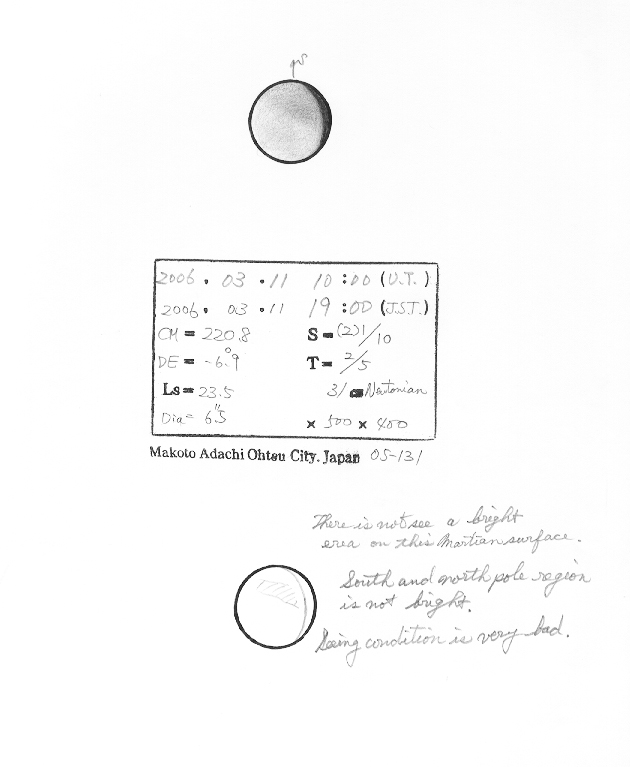 2006. 03 .11 10:00 (U.T.)
2006. 03 .11 19:00 (J.S.T.)
CM = 220.8 S = (2)1/10
DE = -6.°9 T = 2/5
Ls = 23.5 31 cm Newtonian
Dia = 6."5 × 500 × 400
Makoto Adachi Ohtsu City. Japan 05-131
There is not see a bright
erea on this Martian surface.
South and north pole region
is not bright.
Seeing condition is very bad.